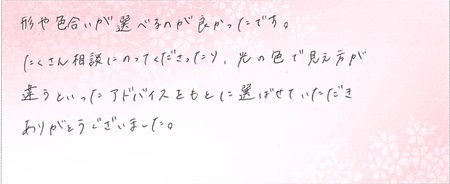 形や色合いが選べるのが良かったです。
たくさん相談にのってくださったり、光の色で見え方が
違うといったアドバイスをもとに選ばせていただき
ありがとうございました。